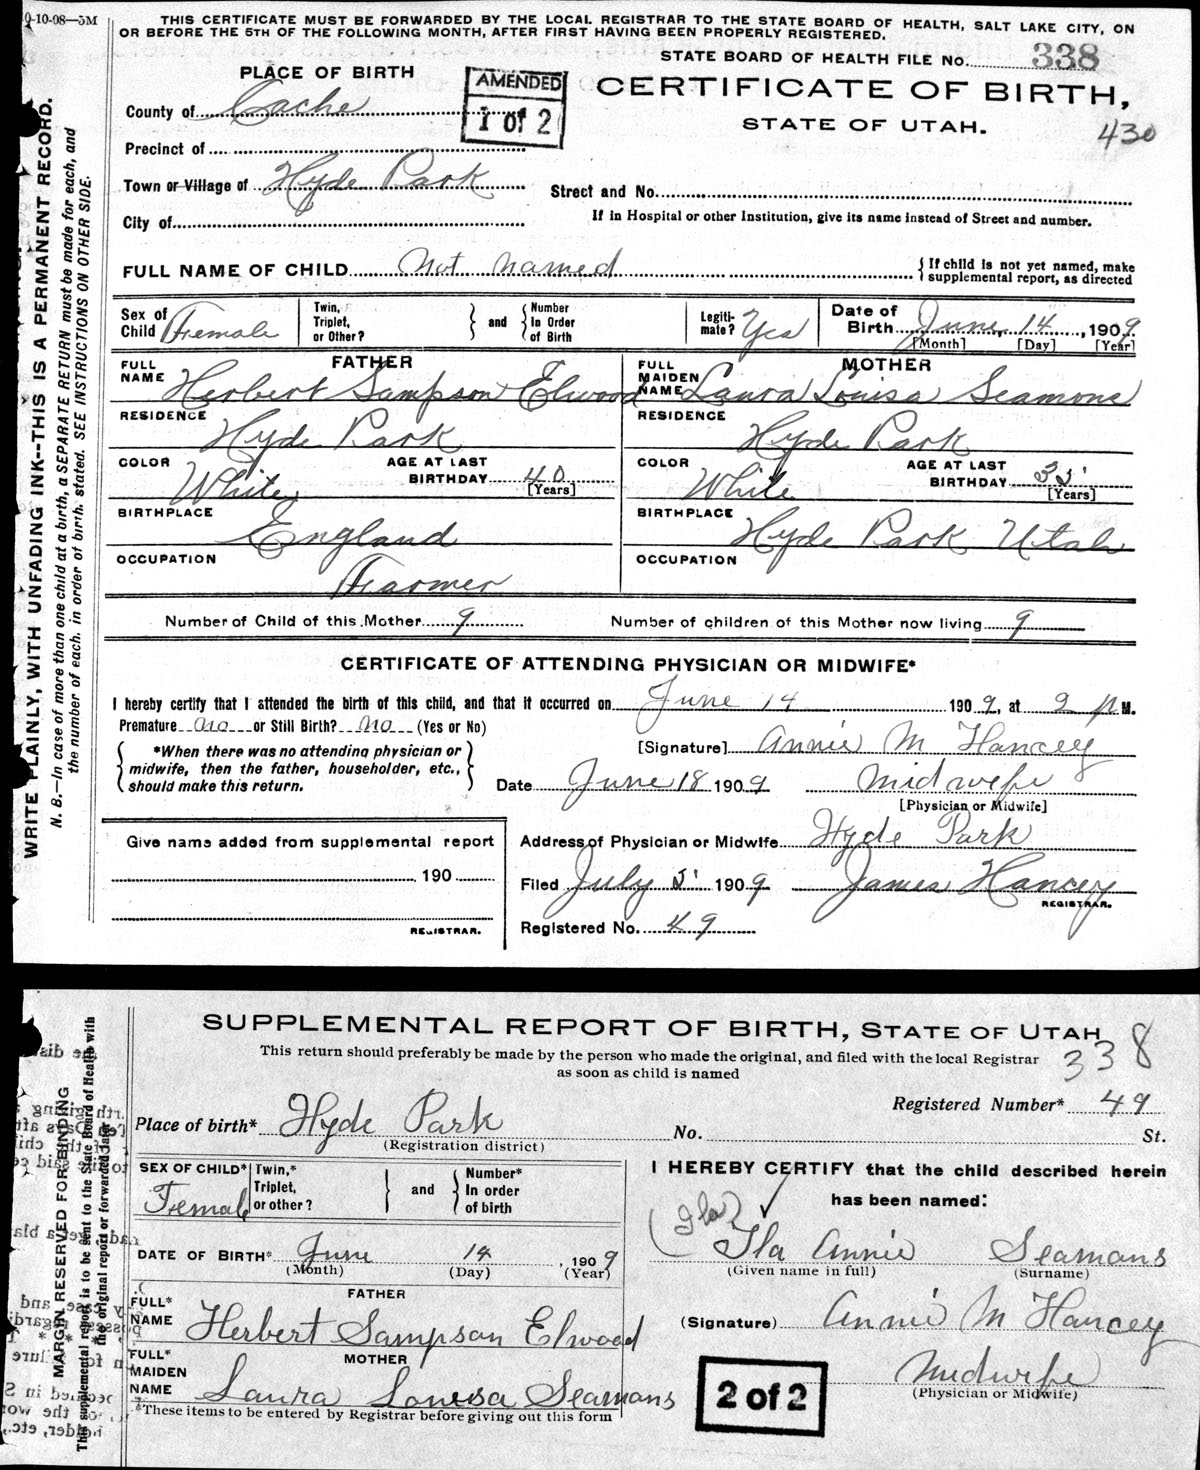 0-10-08—5M
THIS CERTIFICATE MUST BE FORWARDED BY THE LOCAL REGISTRAR TO THE STATE BOARD OF HEALTH, SALT LAKE CITY, ON
OR BEFORE THE 5TH OF THE FOLLOWING MONTH, AFTER FIRST HAVING BEEN PROPERLY REGISTERED.
STATE BOARD OF HEALTH FILE No. 338
PLACE OF BIRTH
AMENDED
1 of 2
CERTIFICATE OF BIRTH,
STATE OF UTAH.
430
County of Cache
Precinct of
Town or Village of Hyde Park
Street and No.
City of
If in Hospital or other Institution, give its name instead of Street and number.
FULL NAME OF CHILD Not named
{If child is not yet named, make
supplemental report, as directed
Sex of Child Female
Twin, Triplet, or Other?
and
Number In Order of Birth
Legiti-mate? Yes
Date of Birth June 14, 1909
[Month] [Day] [Year]
FATHER
FULL NAME Herbert Sampson Elwood
MOTHER
FULL MAIDEN NAME Laura Louisa Seamons
RESIDENCE Hyde Park
RESIDENCE Hyde Park
COLOR White
AGE AT LAST BIRTHDAY 40 [Years]
COLOR White
AGE AT LAST BIRTHDAY 35 [Years]
BIRTHPLACE England
BIRTHPLACE Hyde Park Utah
OCCUPATION Farmer
OCCUPATION
Number of Child of this Mother 9
Number of children of this Mother now living 9
CERTIFICATE OF ATTENDING PHYSICIAN OR MIDWIFE*
I hereby certify that I attended the birth of this child, and that it occurred on June 14 1909, at 2 P M.
Premature no or Still Birth? no (Yes or No)
*When there was no attending physician or
midwife, then the father, householder, etc.,
should make this return.
[Signature] Annie M Hancey
Date June 18 1909 Midwife
[Physician or Midwife]
Give name added from supplemental report
190
REGISTRAR.
Address of Physician or Midwife Hyde Park
Filed July 5 1909 James Hancey
REGISTRAR.
Registered No. 49
WRITE PLAINLY, WITH UNFADING INK--THIS IS A PERMANENT RECORD.
N. B.—In case of more than one child at a birth, a SEPARATE RETURN must be made for each, and
the number of each, in order of birth, stated. SEE INSTRUCTIONS ON OTHER SIDE.
SUPPLEMENTAL REPORT OF BIRTH, STATE OF UTAH
This return should preferably be made by the person who made the original, and filed with the local Registrar
as soon as child is named
338
Registered Number* 49
Place of birth* Hyde Park No. St.
(Registration district)
SEX OF CHILD* Female
Twin,* Triplet, or other?
and
Number* In order of birth
I HEREBY CERTIFY that the child described herein
has been named:
(Ila)
Ila Annie Seamans
(Given name in full) (Surname)
DATE OF BIRTH* June 14, 1909
(Month) (Day) (Year)
FATHER
FULL* NAME Herbert Sampson Elwood
(Signature) Annie M Hancey
MOTHER
FULL* MAIDEN NAME Laura Louisa Seamans
Midwife
(Physician or Midwife)
2 of 2
*These items to be entered by Registrar before giving out this form
MARGIN RESERVED FOR BINDING
This supplemental report is to be sent to the State Board of Health with
the original report or forwarded later